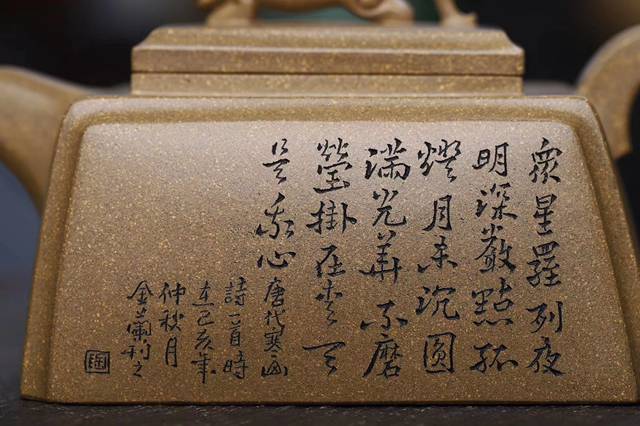 衆星羅列夜
明深巖點孤
燈月未沉圓
滿光華不磨
瑩掛在青天
是我心唐代寒山
詩一首時
在己亥年
仲秋月
金蘭刻之
陶